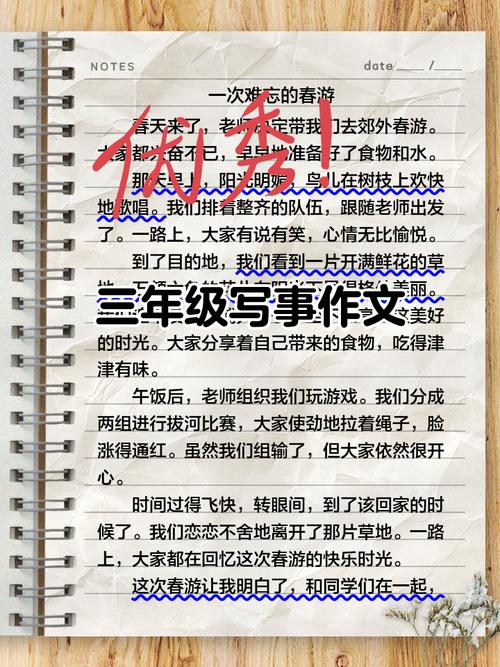 NOTES
date /
一次难忘的春游
春天来了,老师 定带我们去郊外春游。
大家都 奋不已,早早地准备好了食物和水。
那天早上,阳光明媚,鸟儿在树枝上欢快
地歌唱。我们排着整齐的队伍,跟随老师出发
了。一路上,大家有说有笑,心情无比愉悦。
到了目的地,我们看到一片开满鲜花的草
优秀!
三年级写事作文
美好
的时光。大家分享着自己带来的食物,吃得津
津有味。
午饭后,老师组织我们玩游戏。我们分成
两组进行拔河比赛,大家使劲地拉着绳子,脸
涨得通红。虽然我们组输了,但大家依然很开
心。
时间过得飞快,转眼间,到了该回家的时
候了。我们恋恋不舍地离开了那片草地。一路
上,大家都在回忆这次春游的快乐时光。
这次春游让我明白了,和同学们在一起,